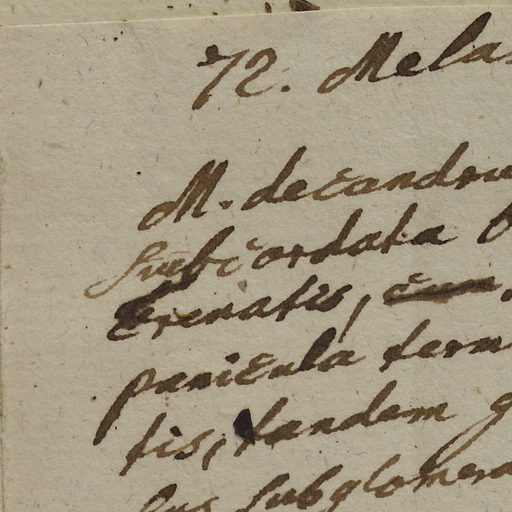 72. Mela
M. decandru
subcordata
crenatis, cum
panicula term
tis, tandem g
subglomera